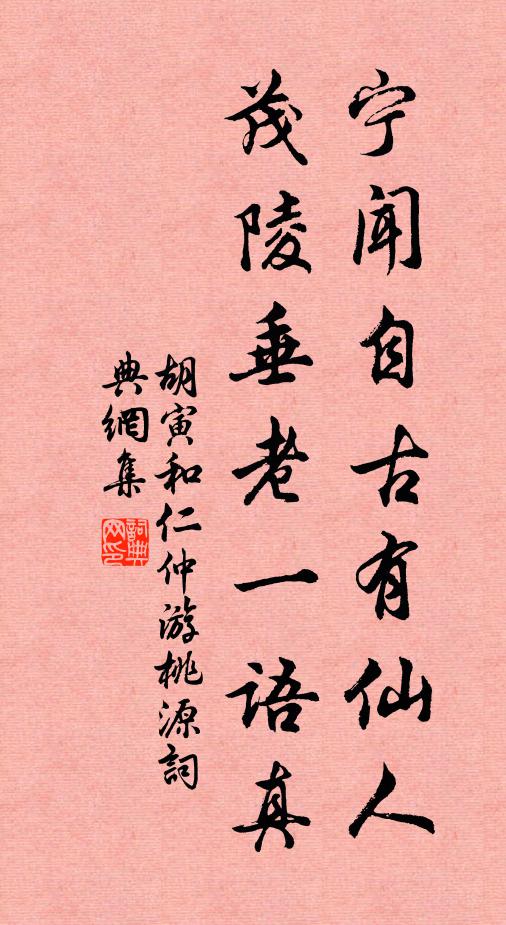 宁闻自古有仙人
茂陵垂老一语真
胡寅和仁仲游桃源詞
典網集
詞典网印